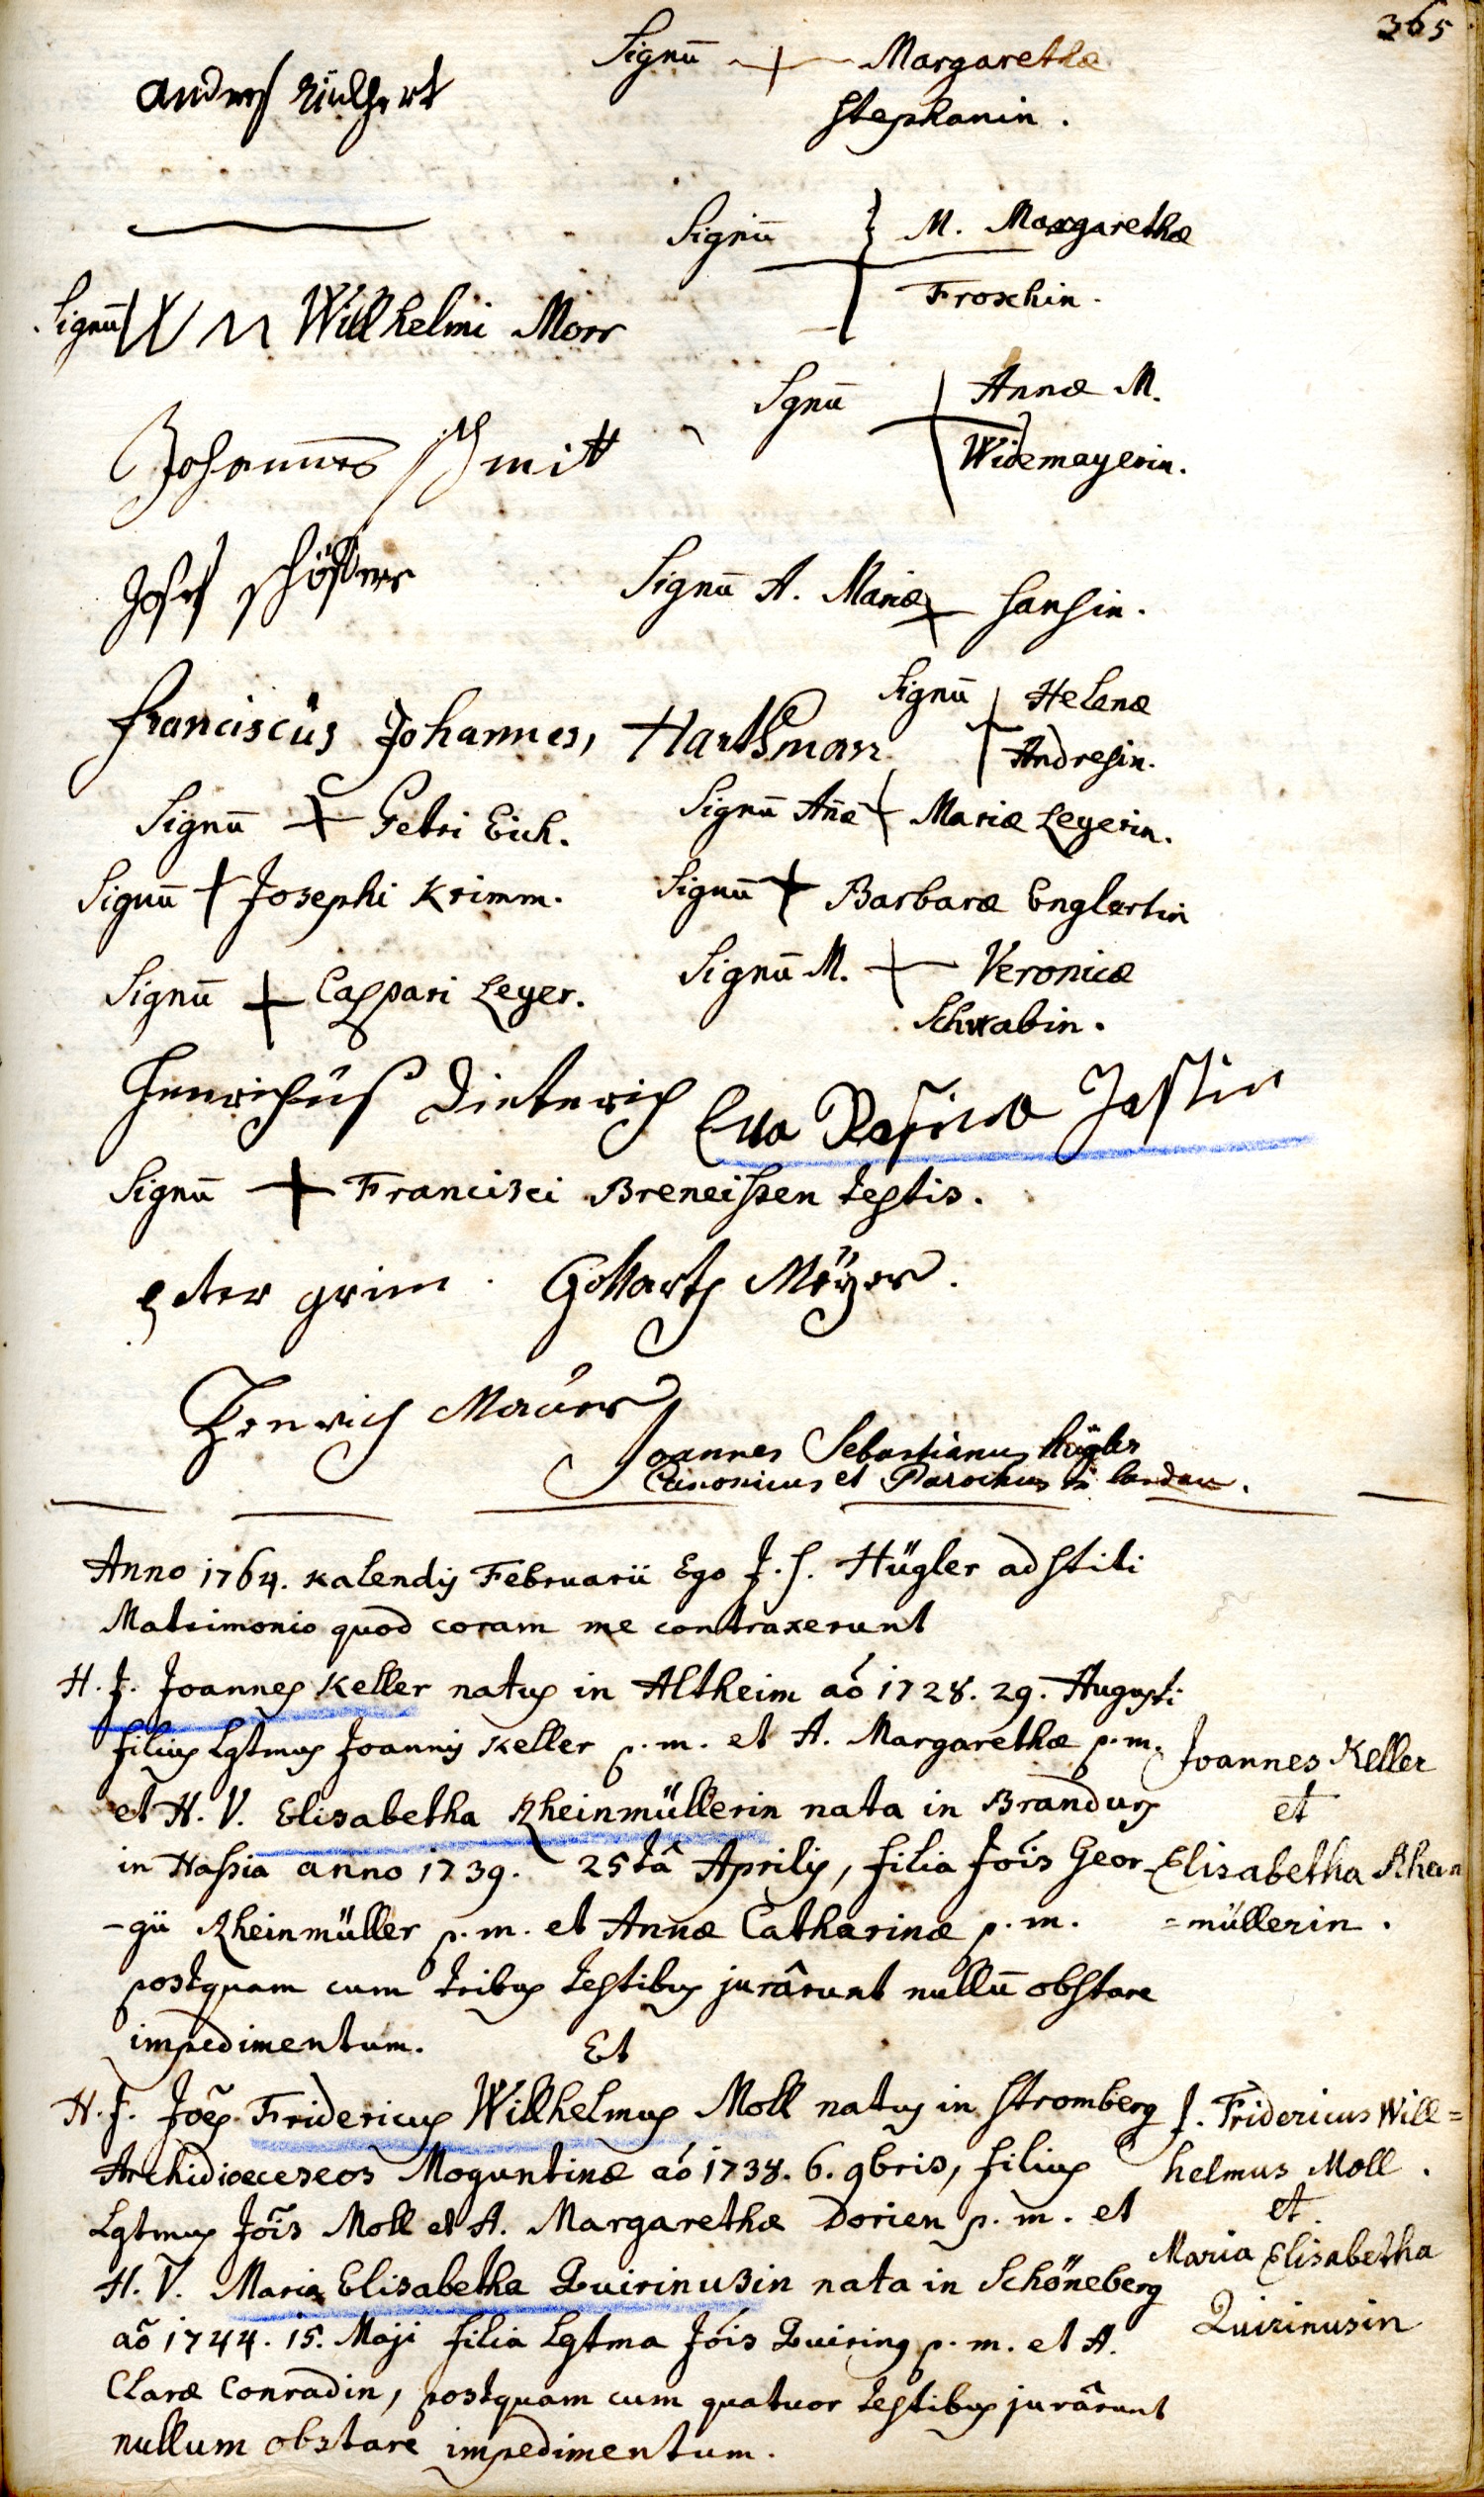 365
Signū + Margarethæ
Stephanin.
Signū M. Margarethæ
Froschin.
Signū W M Willhelmi Morr
Sgnū Annæ M.
Widemayerin.
Johannes Schmit
Signū A. Mariæ + Hansin.
Franciscus Johannes, Harthman
Signū + Helenæ
Andresin.
Signū + Petri Eich.
Signū Añæ + Mariæ Leyerin.
Signū + Josephi Krimm.
Signū + Barbaræ Englertin
Signū + Caspari Leyer.
Signū M. + Veronicæ
Schwabin.
Henrichus Dieterich
Eva Rosina Jostin
Signū + Francisci Breneissen testis.
peter grim. Gottarth Meÿer.
Henrich Maurer
Joannes Sebastianus Hügler
Canonicus et Parochus in landau.
Anno 1764. Kalendis Februarii Ego J. S. Hügler adstiti
Matrimonio quod coram me contraxerunt
H. J. Joannes Keller natus in Altheim aō 1728. 29. Augusti
filius Lgtmus Joannis Keller p. m. et A. Margarethæ p. m.
et H. V. Elisabetha Rheinmüllerin nata in
in Hassia anno 1739. 25tâ Aprilis, filia Jōis Geor-
-gii Rheinmüller p. m. et Annæ Catharinæ p. m.
postquam cum tribus testibus jurârunt nullū obstare
impedimentum. Et
Joannes Keller
et
Elisabetha Rhein
=müllerin.
H. J. Joēs Fridericus Willhelmus Moll natus in Stromberg
Archidioeceseos Moguntinæ aō 1738. 6. 9bris, filius
Lgtmus Jōis Moll et A. Margarethæ Dorien p. m. et
H. V. Maria Elisabetha Quirinusin nata in Schöneberg
aō 1744. 15. Maji filia Lgtma Jōis Quirinus p. m. et A.
Claræ Conradin, postquam cum quatuor testibus jurârunt
nullum obstare impedimentum.
J. Fridericus Will=
helmus Moll.
et.
Maria Elisabetha
Quirinusin